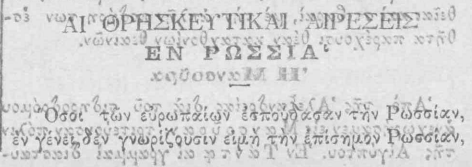 ΑΙ ΘΡΗΣΚΕΥΤΙΚΑΙ ΑΙΡΕΣΕΙΣ
ΕΝ ΡΩΣΣΙΑ
Ὅσοι τῶν εὐρωπαίων ἐσπούδασαν τὴν Ῥωσσίαν,
ἐν γένει δὲν γνωρίζουσιν εἰμὴ τὴν ἐπίσημον Ῥωσσίαν.